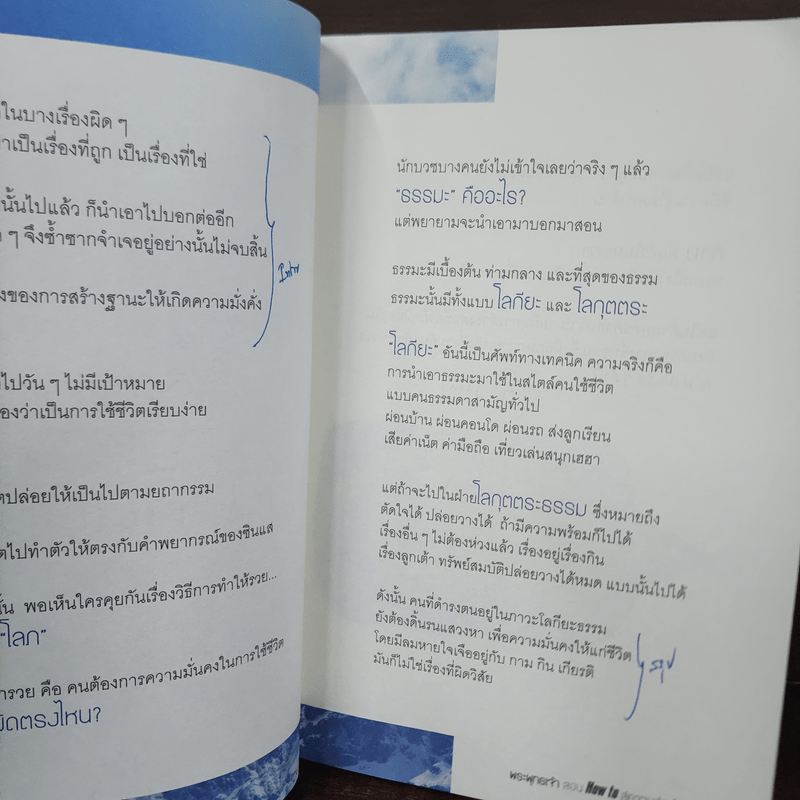 ในบางเรื่องผิด ๆ
เป็นเรื่องที่ถูก เป็นเรื่องที่ใช่
นั้นไปแล้ว ก็นำเอาไปบอกต่ออีก
ๆ จึงซ้ำซากจำเจอยู่อย่างนั้นไม่จบสิ้น
ของการสร้างฐานะให้เกิดความมั่งคั่ง
ไปวัน ๆ ไม่มีเป้าหมาย
ว่าเป็นการใช้ชีวิตเรียบง่าย
ปล่อยให้เป็นไปตามยถากรรม
ไปทำตัวให้ตรงกับคำพยากรณ์ของซินแส
พอเห็นใครคุยกันเรื่องวิธีการทำให้รวย...
"โลก"
รวย คือ คนต้องการความมั่นคงในการใช้ชีวิต
ผิดตรงไหน?
นักบวชบางคนยังไม่เข้าใจเลยว่าจริง ๆ แล้ว
"ธรรมะ" คืออะไร?
แต่พยายามจะนำเอามาบอกมาสอน
ธรรมะมีเบื้องต้น ท่ามกลาง และที่สุดของธรรม
ธรรมะนั้นมีทั้งแบบโลกียะ และ โลกุตตระ
"โลกียะ" อันนี้เป็นศัพท์ทางเทคนิค ความจริงก็คือ
การนำเอาธรรมะมาใช้ในสไตล์คนใช้ชีวิต
แบบคนธรรมดาสามัญทั่วไป
ผ่อนบ้าน ผ่อนคอนโด ผ่อนรถ ส่งลูกเรียน
เสียค่าเน็ต ค่ามือถือ เที่ยวเล่นสนุกเฮฮา
แต่ถ้าจะไปในฝ่ายโลกุตตระธรรม ซึ่งหมายถึง
ตัดใจได้ ปล่อยวางได้ ถ้ามีความพร้อมก็ไปได้
เรื่องอื่น ๆ ไม่ต้องห่วงแล้ว เรื่องอยู่เรื่องกิน
เรื่องลูกเต้า ทรัพย์สมบัติปล่อยวางได้หมด แบบนั้นไปได้
ดังนั้น คนที่ดำรงตนอยู่ในภาวะโลกียะธรรม
ยังต้องดิ้นรนแสวงหา เพื่อความมั่นคงให้แก่ชีวิต
โดยมีลมหายใจเจืออยู่กับ กาม กิน เกียรติ
มันก็ไม่ใช่เรื่องที่ผิดวิสัย
สรุป
พระพุทธเจ้า สอน How to